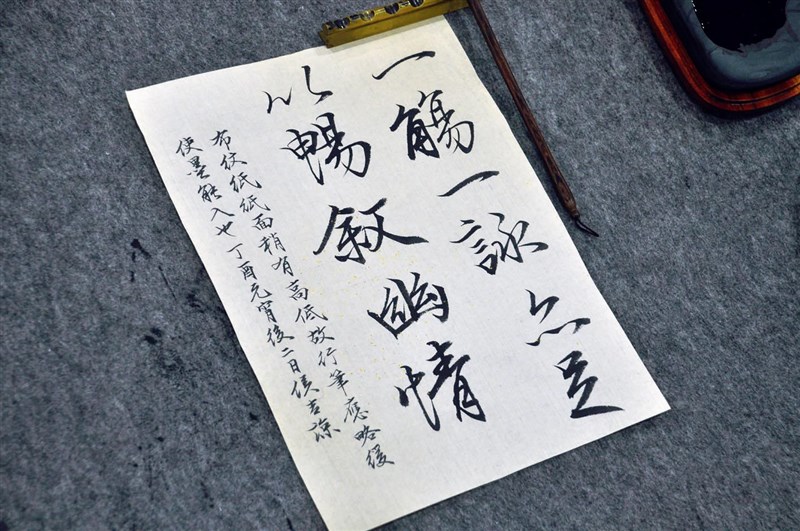 一觴一詠亦足
以暢叙幽情
布紋紙紙面稍有高低故行筆應略緩
使墨能入也丁酉元宵後二日侯吉諒